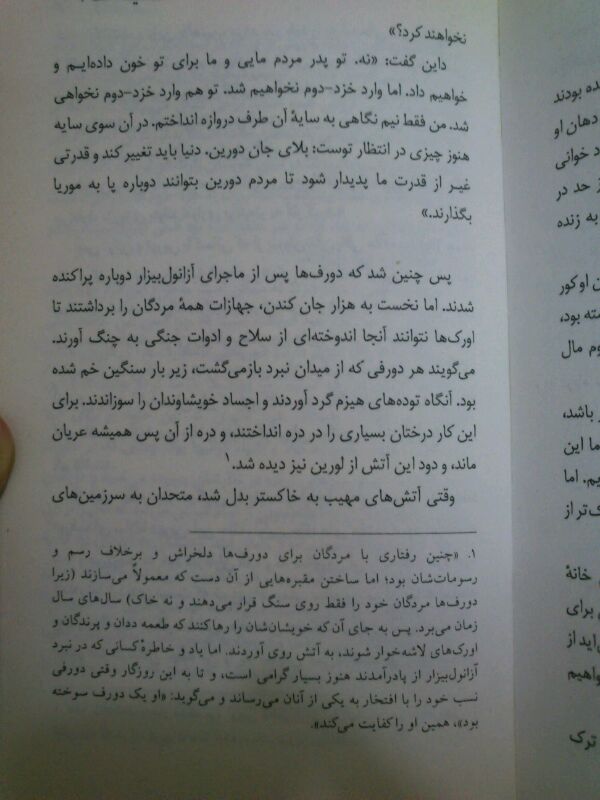 نخواهند کرد؟»
داین گفت: «نه. تو پدر مردم مایی و ما برای تو خون داده‌ایم و
خواهیم داد. اما وارد خزد-دوم نخواهیم شد. تو هم وارد خزد-دوم نخواهی
شد. من فقط نیم نگاهی به سایهٔ آن طرف دروازه انداختم. در آن سوی سایه
هنوز چیزی در انتظار توست: بلای جان دورین. دنیا باید تغییر کند و قدرتی
غیر از قدرت ما پدیدار شود تا مردم دورین بتوانند دوباره پا به موریا
بگذارند.»
پس چنین شد که دورف‌ها پس از ماجرای آزانول‌بیزار دوباره پراکنده
شدند. اما نخست به هزار جان کندن، جهازات همهٔ مردگان را برداشتند تا
اورک‌ها نتوانند آنجا اندوخته‌ای از سلاح و ادوات جنگی به چنگ آورند.
می‌گویند هر دورفی که از میدان نبرد بازمی‌گشت، زیر بار سنگین خم شده
بود. آنگاه توده‌های هیزم گرد آوردند و اجساد خویشاوندان را سوزاندند. برای
این کار درختان بسیاری را در دره انداختند، و دره از آن پس همیشه عریان
ماند، و دود این آتش از لورین نیز دیده شد.۱
وقتی آتش‌های مهیب به خاکستر بدل شد، متحدان به سرزمین‌های
۱. «چنین رفتاری با مردگان برای دورف‌ها دلخراش و برخلاف رسم و
رسومات‌شان بود؛ اما ساختن مقبره‌هایی از آن دست که معمولاً می‌سازند (زیرا
دورف‌ها مردگان خود را فقط روی سنگ قرار می‌دهند و نه خاک) سال‌های سال
زمان می‌برد. پس به جای آن که خویشان‌شان را رها کنند که طعمه ددان و پرندگان و
اورک‌های لاشه‌خوار شوند، به آتش روی آوردند. اما یاد و خاطرهٔ کسانی که در نبرد
آزانول‌بیزار از پا درآمدند هنوز بسیار گرامی است، و تا به این روزگار وقتی دورفی
نسب خود را با افتخار به یکی از آنان می‌رساند و می‌گوید: «او یک دورف سوخته
بود»، همین او را کفایت می‌کند».
ده بودند
دهان او
د خوانی
ز حد در
به زنده
ن او کور
سته بود،
وم مال
باشد،
ما این
یم. اما
ک‌تر از
خانهٔ
ی برای
ی‌اید از
واهیم
ترک